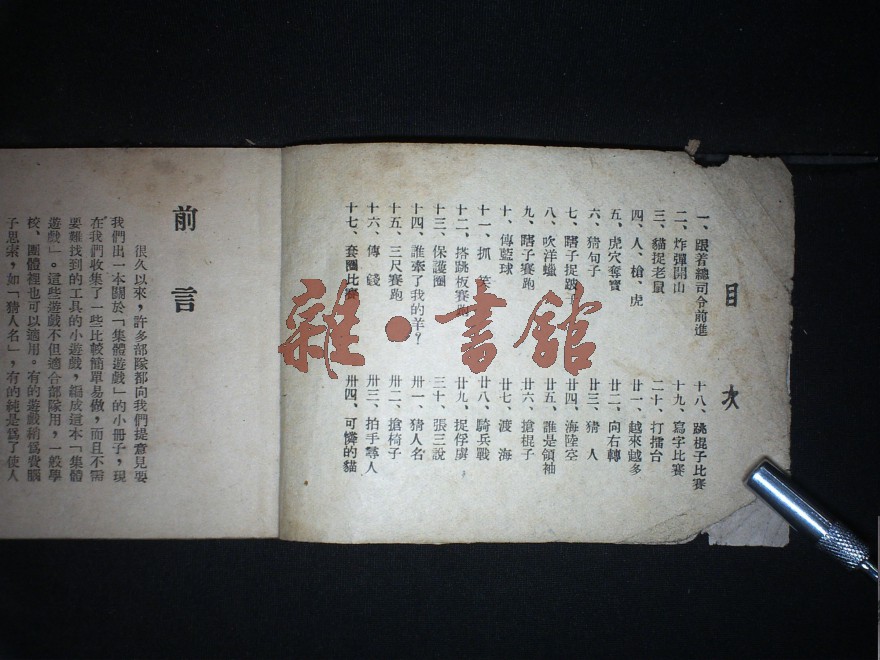 目次
一、跟着總司令前進
二、炸彈開山
三、貓捉老鼠
四、人、槍、虎
五、虎穴奪寶
六、猜句子
七、瞎子捉跛子
八、吹洋蠟
九、瞎子賽跑
十、傳藍球
十一、抓
十二、搭跳板賽跑
十三、保護圈
十四、誰牽了我的羊?
十五、三尺賽跑
十六、傳錢
十七、套圈比賽
十八、跳棍子比賽
十九、寫字比賽
二十、打擂台
廿一、越來越多
廿二、向右轉
廿三、猜人
廿四、海陸空
廿五、誰是領袖
廿六、搶棍子
廿七、渡海
廿八、騎兵戰
廿九、捉俘虜
三十、張三說
卅一、猜人名
卅二、搶椅子
卅三、拍手尋人
卅四、可憐的貓
前言
很久以來,許多部隊都向我們提意見要
我們出一本關於「集體遊戲」的小冊子,現
在我們收集了一些比較簡單易做,而且不需
要難找到的工具的小遊戲,編成這本「集體
遊戲」。這些遊戲不但適合部隊用,一般學
校、團體裡也可以適用。有的遊戲稍爲費腦
子思索,如「猜人名」,有的純是爲了使人
雜·書館